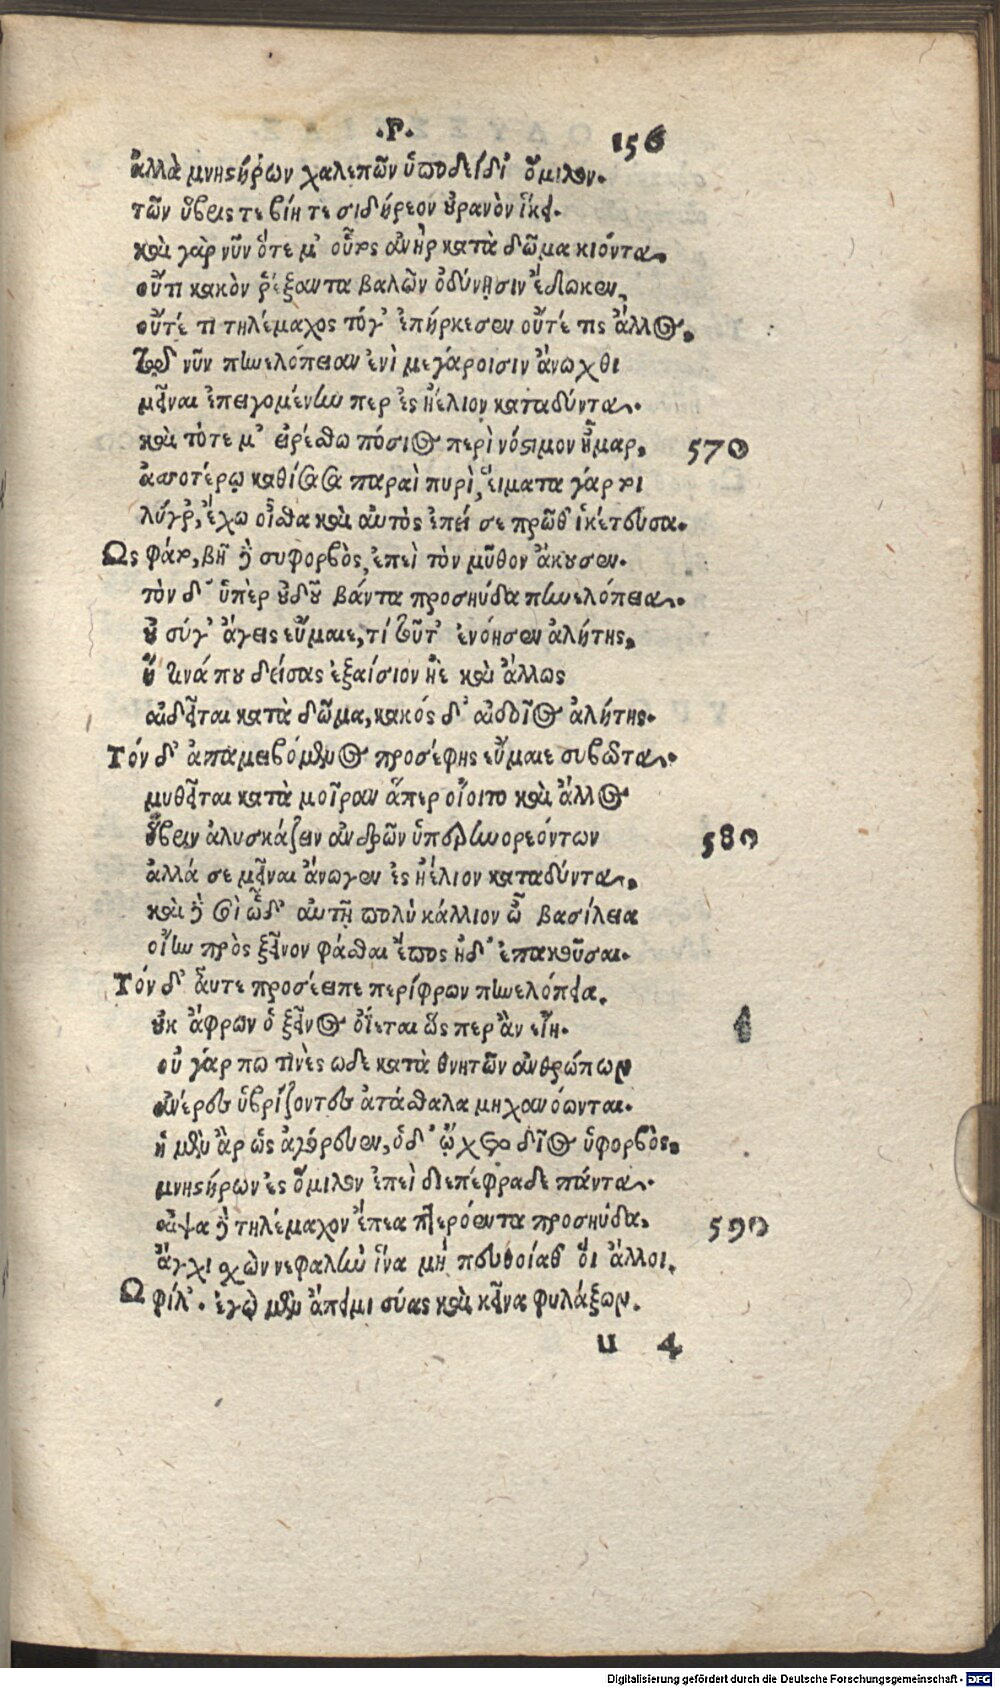 .Ρ.
156
ἀλλὰ μνηστήρων χαλεπῶν ὑποδείδι' ὅμιλον.
τῶν ὕβρις τε βίη τε σιδήρεον οὐρανὸν ἵκει.
καὶ γὰρ νῦν ὅτε μ' οὗτος ἀνὴρ κατὰ δῶμα κιόντα.
οὔτι κακὸν ῥέξαντα βαλὼν ὀδύνησιν ἔδωκεν,
οὔτέ τι τηλέμαχος τόγ' ἐπήρκεσεν οὔτέ τις ἄλλος.
τῷ νῦν πηνελόπειαν ἐνὶ μεγάροισιν ἄνωχθι
μεῖναι ἐπειγομένην περ ἐς ἠέλιον καταδύντα.
καὶ τότε μ' εἰρέσθω πόσιος περὶ νόστιμον ἦμαρ,
570
ἀσσοτέρω καθίσασα παραὶ πυρὶ, εἵματα γάρ τοι
λύγρ', ἔχω οἶσθα καὶ αὐτὸς ἐπεί σε πρῶθ' ἱκέτευσα.
Ως φάτο, βῆ δὲ συφορβὸς, ἐπεὶ τὸν μῦθον ἄκουσεν.
τὸν δ' ὑπὲρ οὐδοῦ βάντα προσηύδα πηνελόπεια.
οὐ σύγ' ἄγεις εὔμαιε, τί τοῦτ' ἐνόησεν ἀλήτης,
ἤ τινά που δείσας ἐξαίσιον ἠὲ καὶ ἄλλως
αἰδεῖται κατὰ δῶμα, κακός δ' αἰδοῖος ἀλήτης.
Τόν δ' ἀπαμειβόμενος προσέφης εὔμαιε συβῶτα.
μυθεῖται κατὰ μοῖραν ἅπερ οἴοιτο καὶ ἄλλος
ὕβριν ἀλυσκάζειν ἀνδρῶν ὑπερηνορεόντων
580
ἀλλά σε μεῖναι ἄνωγεν ἐς ἠέλιον καταδύντα.
καὶ δὲ σοὶ ὧδ' αὐτῇ πολὺ κάλλιον ὦ βασίλεια
οἴην πρὸς ξεῖνον φάσθαι ἔπος ἠδ' ἐπακοῦσαι.
Τόν δ' αὖτε προσέειπε περίφρων πηνελόπεια.
οὐκ ἄφρων ὁ ξεῖνος ὀΐεται ὥς περ ἂν εἴη.
οὐ γάρ πω τινὲς ὧδε κατὰ θνητῶν ἀνθρώπων
ἀνέρες ὑβρίζοντες ἀτάσθαλα μηχανόωνται.
ἡ μὲν ἂρ ὣς ἀγόρευεν, ὁ δ' ᾤχετο δῖος ὑφορβὸς.
μνηστήρων ἐς ὅμιλον ἐπεὶ διεπέφραδε πάντα.
αἶψα δὲ τηλέμαχον ἔπεα πτερόεντα προσηύδα,
590
ἄγχι σχὼν κεφαλὴν ἵνα μὴ πευθοίαθ' οἱ ἄλλοι.
Ω φίλ'. ἐγὼ μὲν ἄπειμι σύας καὶ κεῖνα φυλάξων.
u 4
Digitalisierung gefördert durch die Deutsche Forschungsgemeinschaft - DFG